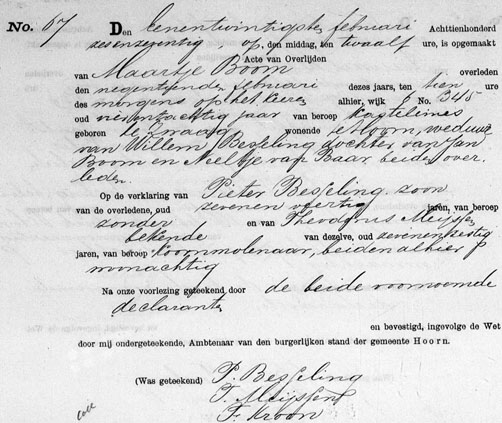 No. 67 Den eenentwintigste februari Achttienhonderd
zesenzeventig op den middag, ten twaalf ure, is opgemaakt
Acte van Overlijden
van Maartje Boom overleden
den negentienden februari dezes jaars, ten tien ure
des morgens op het Keern alhier, wijk No. 345
oud jaar van beroep kasteleines
geboren te Zwaag wonende te Hoorn, weduwe
van Willem Besseling dochter van Jan
Boom en Neeltje van Baar, beiden over
leden.
Op de verklaring van Pieter Besseling zoon
van de overledene, oud zevenen veertig jaren, van beroep
zonder en van Theodorus Meijssen
bekende van dezelve, oud zevenenzestig
jaren, van beroep koornmolenaar, beiden alhier
woonachtig
Na onze voorlezing geteekend door de beide voornoemde
declaranten
en bevestigd, ingevolge de Wet
door mij ondergeteekende, Ambtenaar van den burgerlijken stand der gemeente Hoorn.
(Was geteekend) P. Besseling
T. Meijssen
F. Kroon